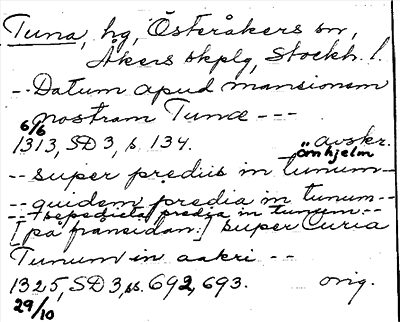 Tuna, hg, Österåkers sn,
Åkers skplg, Stockh. l.
-- Datum apud mansionem
nostram Tunæ ---
6/6
1313, SD 3, s. 134. avskr.
Örnhjelm
-- super prediis in tunum --
-- quidem predia in tunum --
-- sepedicta predia in tunum --
[på framsidan:] super Curia
Tunum in aakri --
1325, SD 3, ss. 692, 693. orig.
29/10